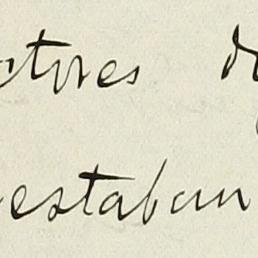 ctores d
estaban